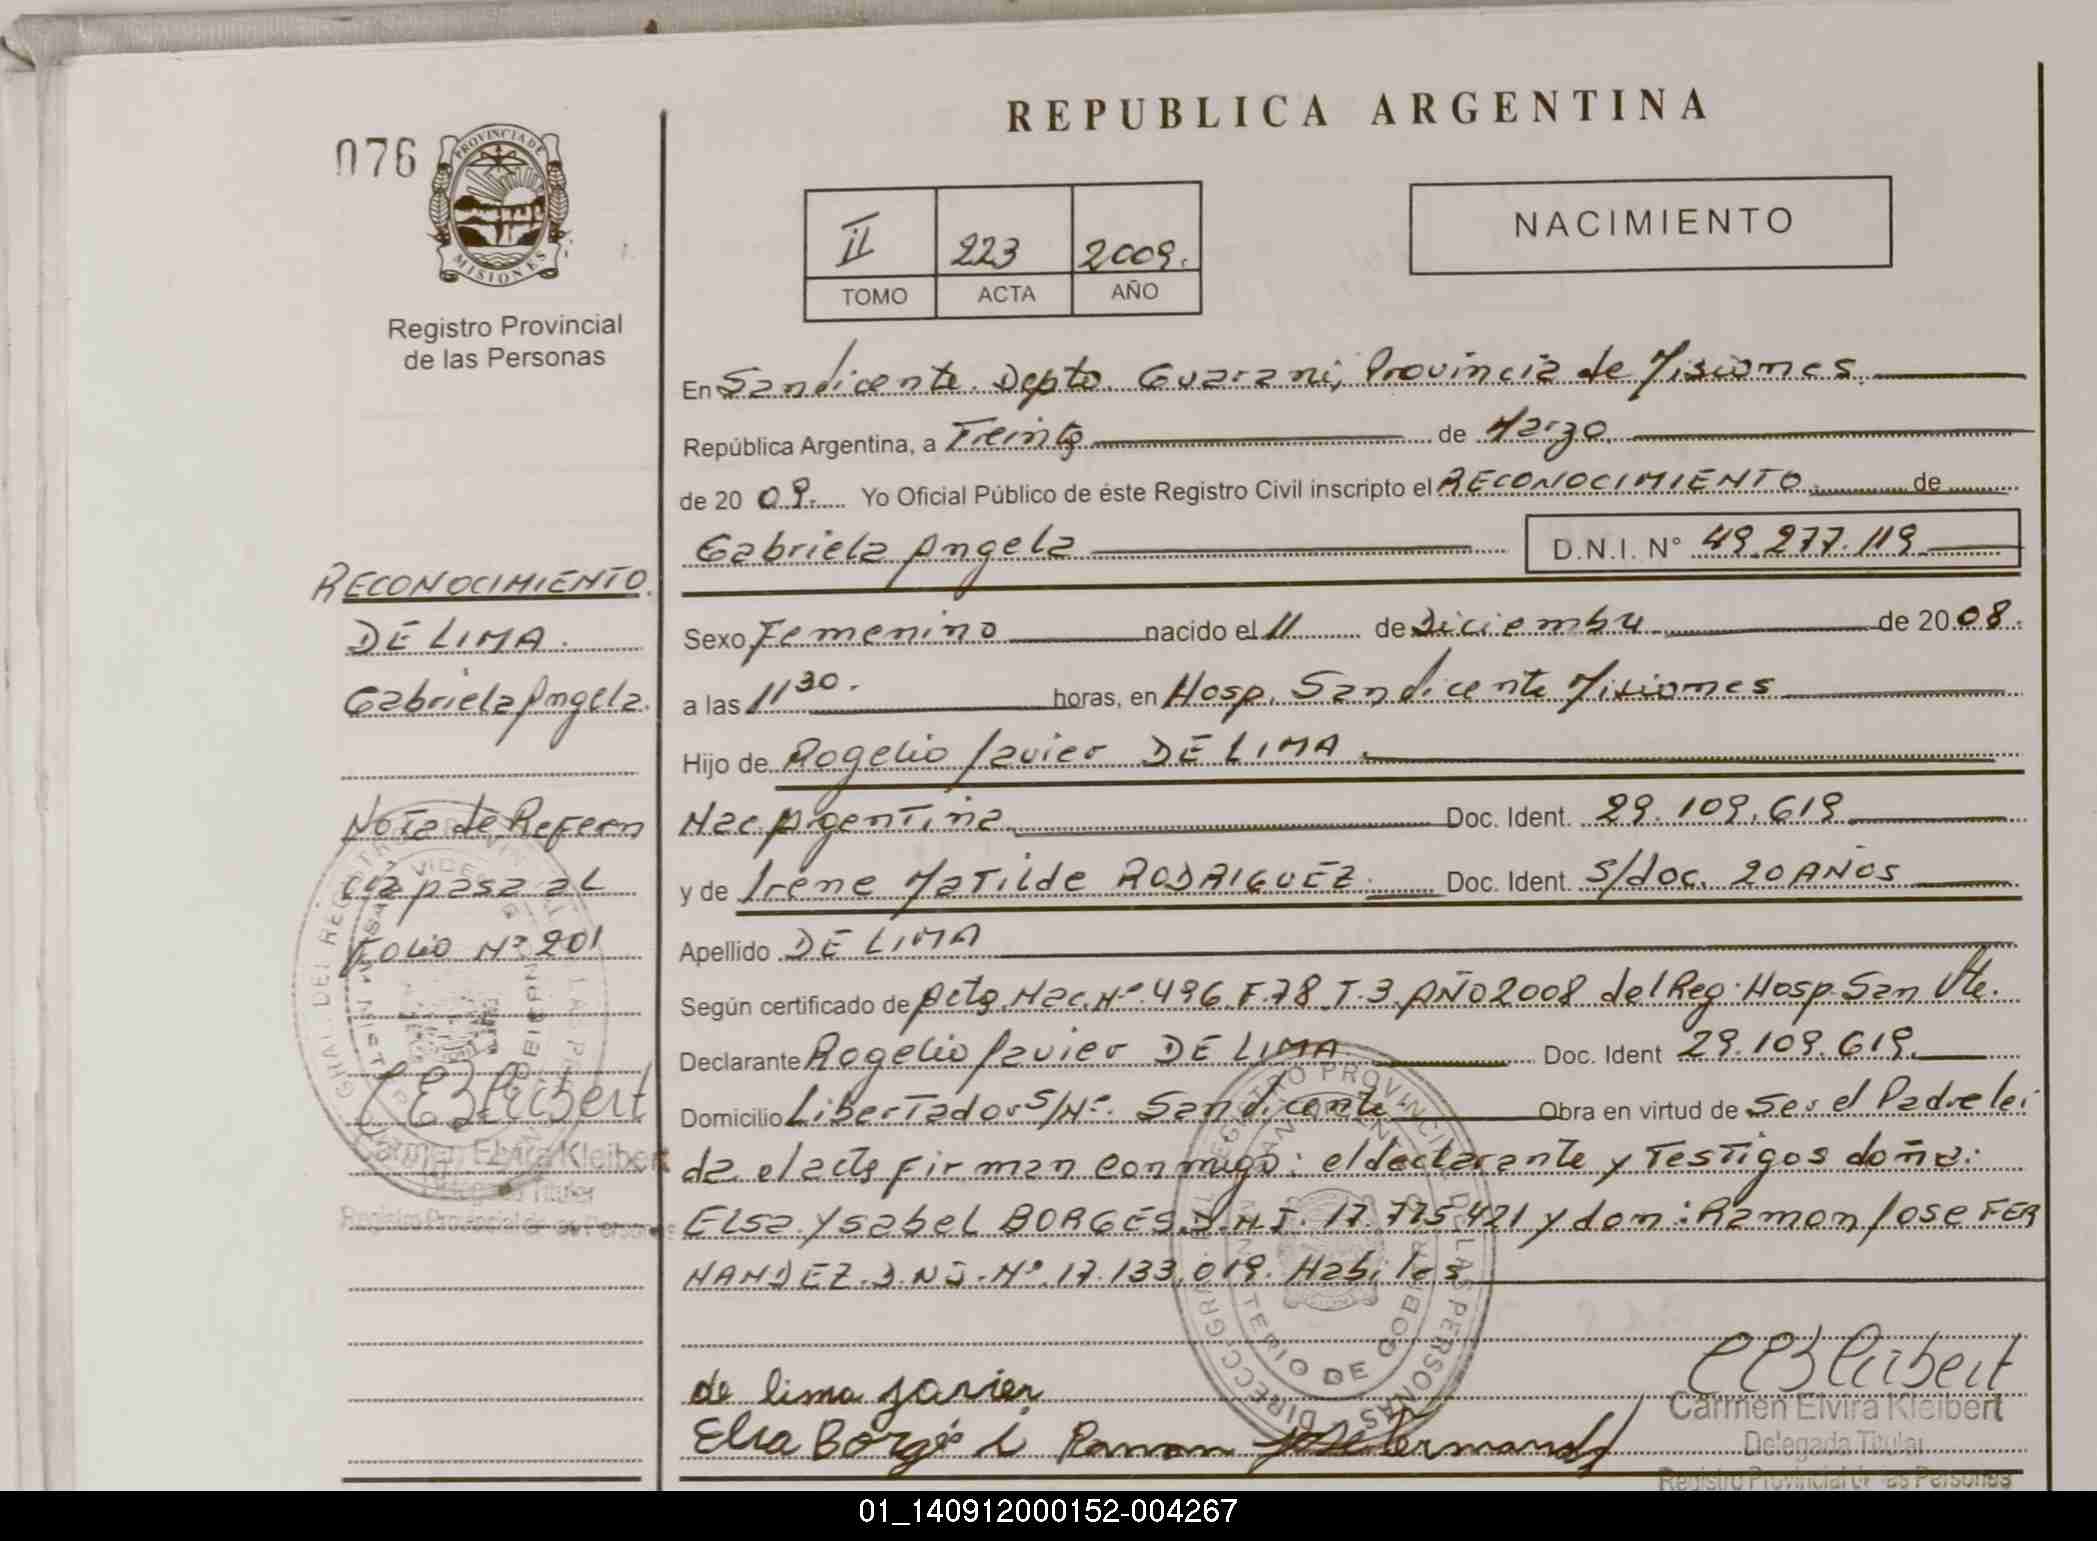 REPUBLICA ARGENTINA
076
PROVINCIA DE
MISIONES
Registro Provincial
de las Personas
II 223 2009.
TOMO ACTA AÑO
NACIMIENTO
En Sandicente. Depto. Guarani, Provincia de Misiones.
República Argentina, a Treinta de Marzo
de 20 09. Yo Oficial Público de éste Registro Civil inscripto el RECONOCIMIENTO de
Gabriela Angela D.N.I. N° 49.277.119
Sexo Femenino nacido el 11 de Diciembre de 2008.
a las 11 30. horas, en Hosp. Sandicente Misiones
Hijo de Rogelio Javier DE LIMA.
Nac. Argentina Doc. Ident. 29.109.619
y de Irene Matilde RODRIGUEZ. Doc. Ident. S/doc. 20 AÑOS
Apellido DE LIMA
Según certificado de Acta. Nac. N°. 496 F.78 T.3 AÑO 2008 del Reg. Hosp. San Vte.
Declarante Rogelio Javier DE LIMA Doc. Ident 29.109.619.
Domicilio Libertador S/N°. Sandicente Obra en virtud de Ser el Padre lei
da el acta firman conmigo: el declarante y Testigos doña:
Elsa Ysabel BORGES D.N.I. 17.775.421 y don: Ramon Jose FER
NANDEZ. D.N.I. N° 17.133.019. Habiles
de lima javier
Elsa Borges i Ramon Jose Fernandez
CEKleibert
Carmen Elvira Kleibert
Delegada Titular
Registro Provincial de las Personas
RECONOCIMIENTO.
DE LIMA.
Gabriela Angela.
Nota de Referen
cia pasa al
Folio N° 201
CEKleibert
Carmen Elvira Kleibert
Delegada Titular
Registro Provincial de las Personas
01_140912000152-004267